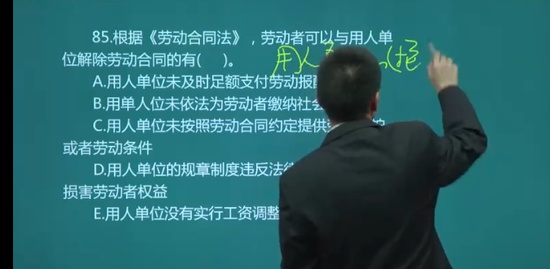 85.根据《劳动合同法》，劳动者可以与用人单
位解除劳动合同的有(    )。
用人
A.用人单位未及时足额支付劳动报
B.用单人位未依法为劳动者缴纳社
C.用人单位未按照劳动合同约定提供
或者劳动条件
D.用人单位的规章制度违反法
损害劳动者权益
E.用人单位没有实行工资调整